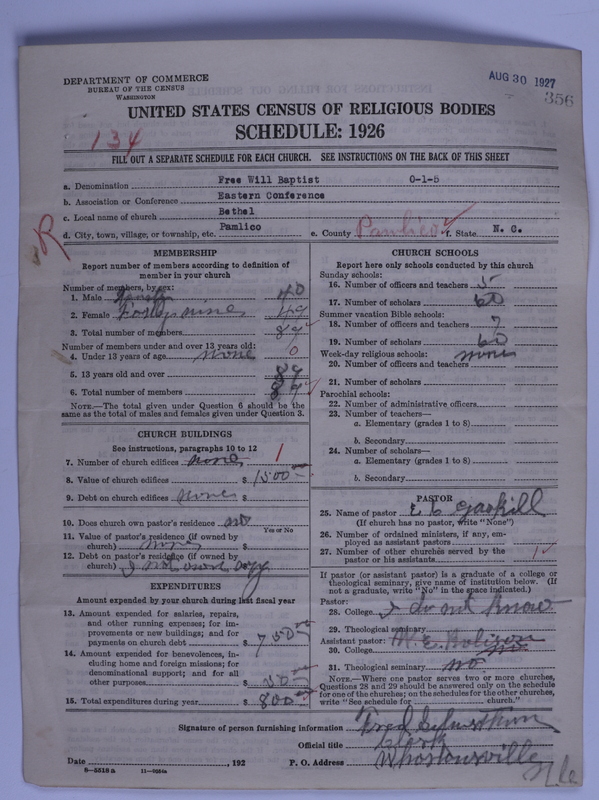 DEPARTMENT OF COMMERCE
BUREAU OF THE CENSUS
WASHINGTON
AUG 30 1927
356
UNITED STATES CENSUS OF RELIGIOUS BODIES
134
SCHEDULE: 1926
FILL OUT A SEPARATE SCHEDULE FOR EACH CHURCH. SEE INSTRUCTIONS ON THE BACK OF THIS SHEET
a. Denomination Free Will Baptist 0-1-5
b. Association or Conference Eastern Conference
c. Local name of church Bethel
R
d. City, town, village, or township, etc. Pamlico e. County Pamlico f. State N. C.
MEMBERSHIP
Report number of members according to definition of
member in your church
Number of members, by sex:
1. Male 40
2. Female Forty nine 49
3. Total number of members 89
Number of members under and over 13 years old:
4. Under 13 years of age none 0
5. 13 years old and over 89
6. Total number of members 89
NOTE.—The total given under Question 6 should be the
same as the total of males and females given under Question 3.
CHURCH BUILDINGS
See instructions, paragraphs 10 to 12
7. Number of church edifices none 1
8. Value of church edifices $ 1500
9. Debt on church edifices none $
10. Does church own pastor's residence no
Yes or No
11. Value of pastor's residence (if owned by
church) none $
12. Debt on pastor's residence (if owned by
church) I not own any
EXPENDITURES
Amount expended by your church during last fiscal year
13. Amount expended for salaries, repairs,
and other running expenses; for im-
provements or new buildings; and for
payments on church debt $ 750
14. Amount expended for benevolences, in-
cluding home and foreign missions; for
denominational support; and for all
other purposes $ 50
15. Total expenditures during year $ 800
CHURCH SCHOOLS
Report here only schools conducted by this church
Sunday schools:
16. Number of officers and teachers 5
17. Number of scholars 60
Summer vacation Bible schools:
18. Number of officers and teachers 7
19. Number of scholars 60
Week-day religious schools: none
20. Number of officers and teachers
21. Number of scholars
Parochial schools:
22. Number of administrative officers
23. Number of teachers—
a. Elementary (grades 1 to 8)
b. Secondary
24. Number of scholars—
a. Elementary (grades 1 to 8)
b. Secondary
PASTOR
25. Name of pastor Gaskill
(If church has no pastor, write "None")
26. Number of ordained ministers, if any, em-
ployed as assistant pastors
27. Number of other churches served by the
pastor or his assistants 1
If pastor (or assistant pastor) is a graduate of a college or
theological seminary, give name of institution below. (If
not a graduate, write "No" in the space indicated.)
Pastor:
28. College I do not know
29. Theological seminary
Assistant pastor:
30. College no
31. Theological seminary no
NOTE.—Where one pastor serves two or more churches,
Questions 28 and 29 should be answered only on the schedule
for one of the churches; on the schedules for the other churches,
write "See schedule for church."
Signature of person furnishing information Fred
Official title Clerk
Date , 192 P. O. Address Whortonsville
N. C.
8—5518a 11—9664a